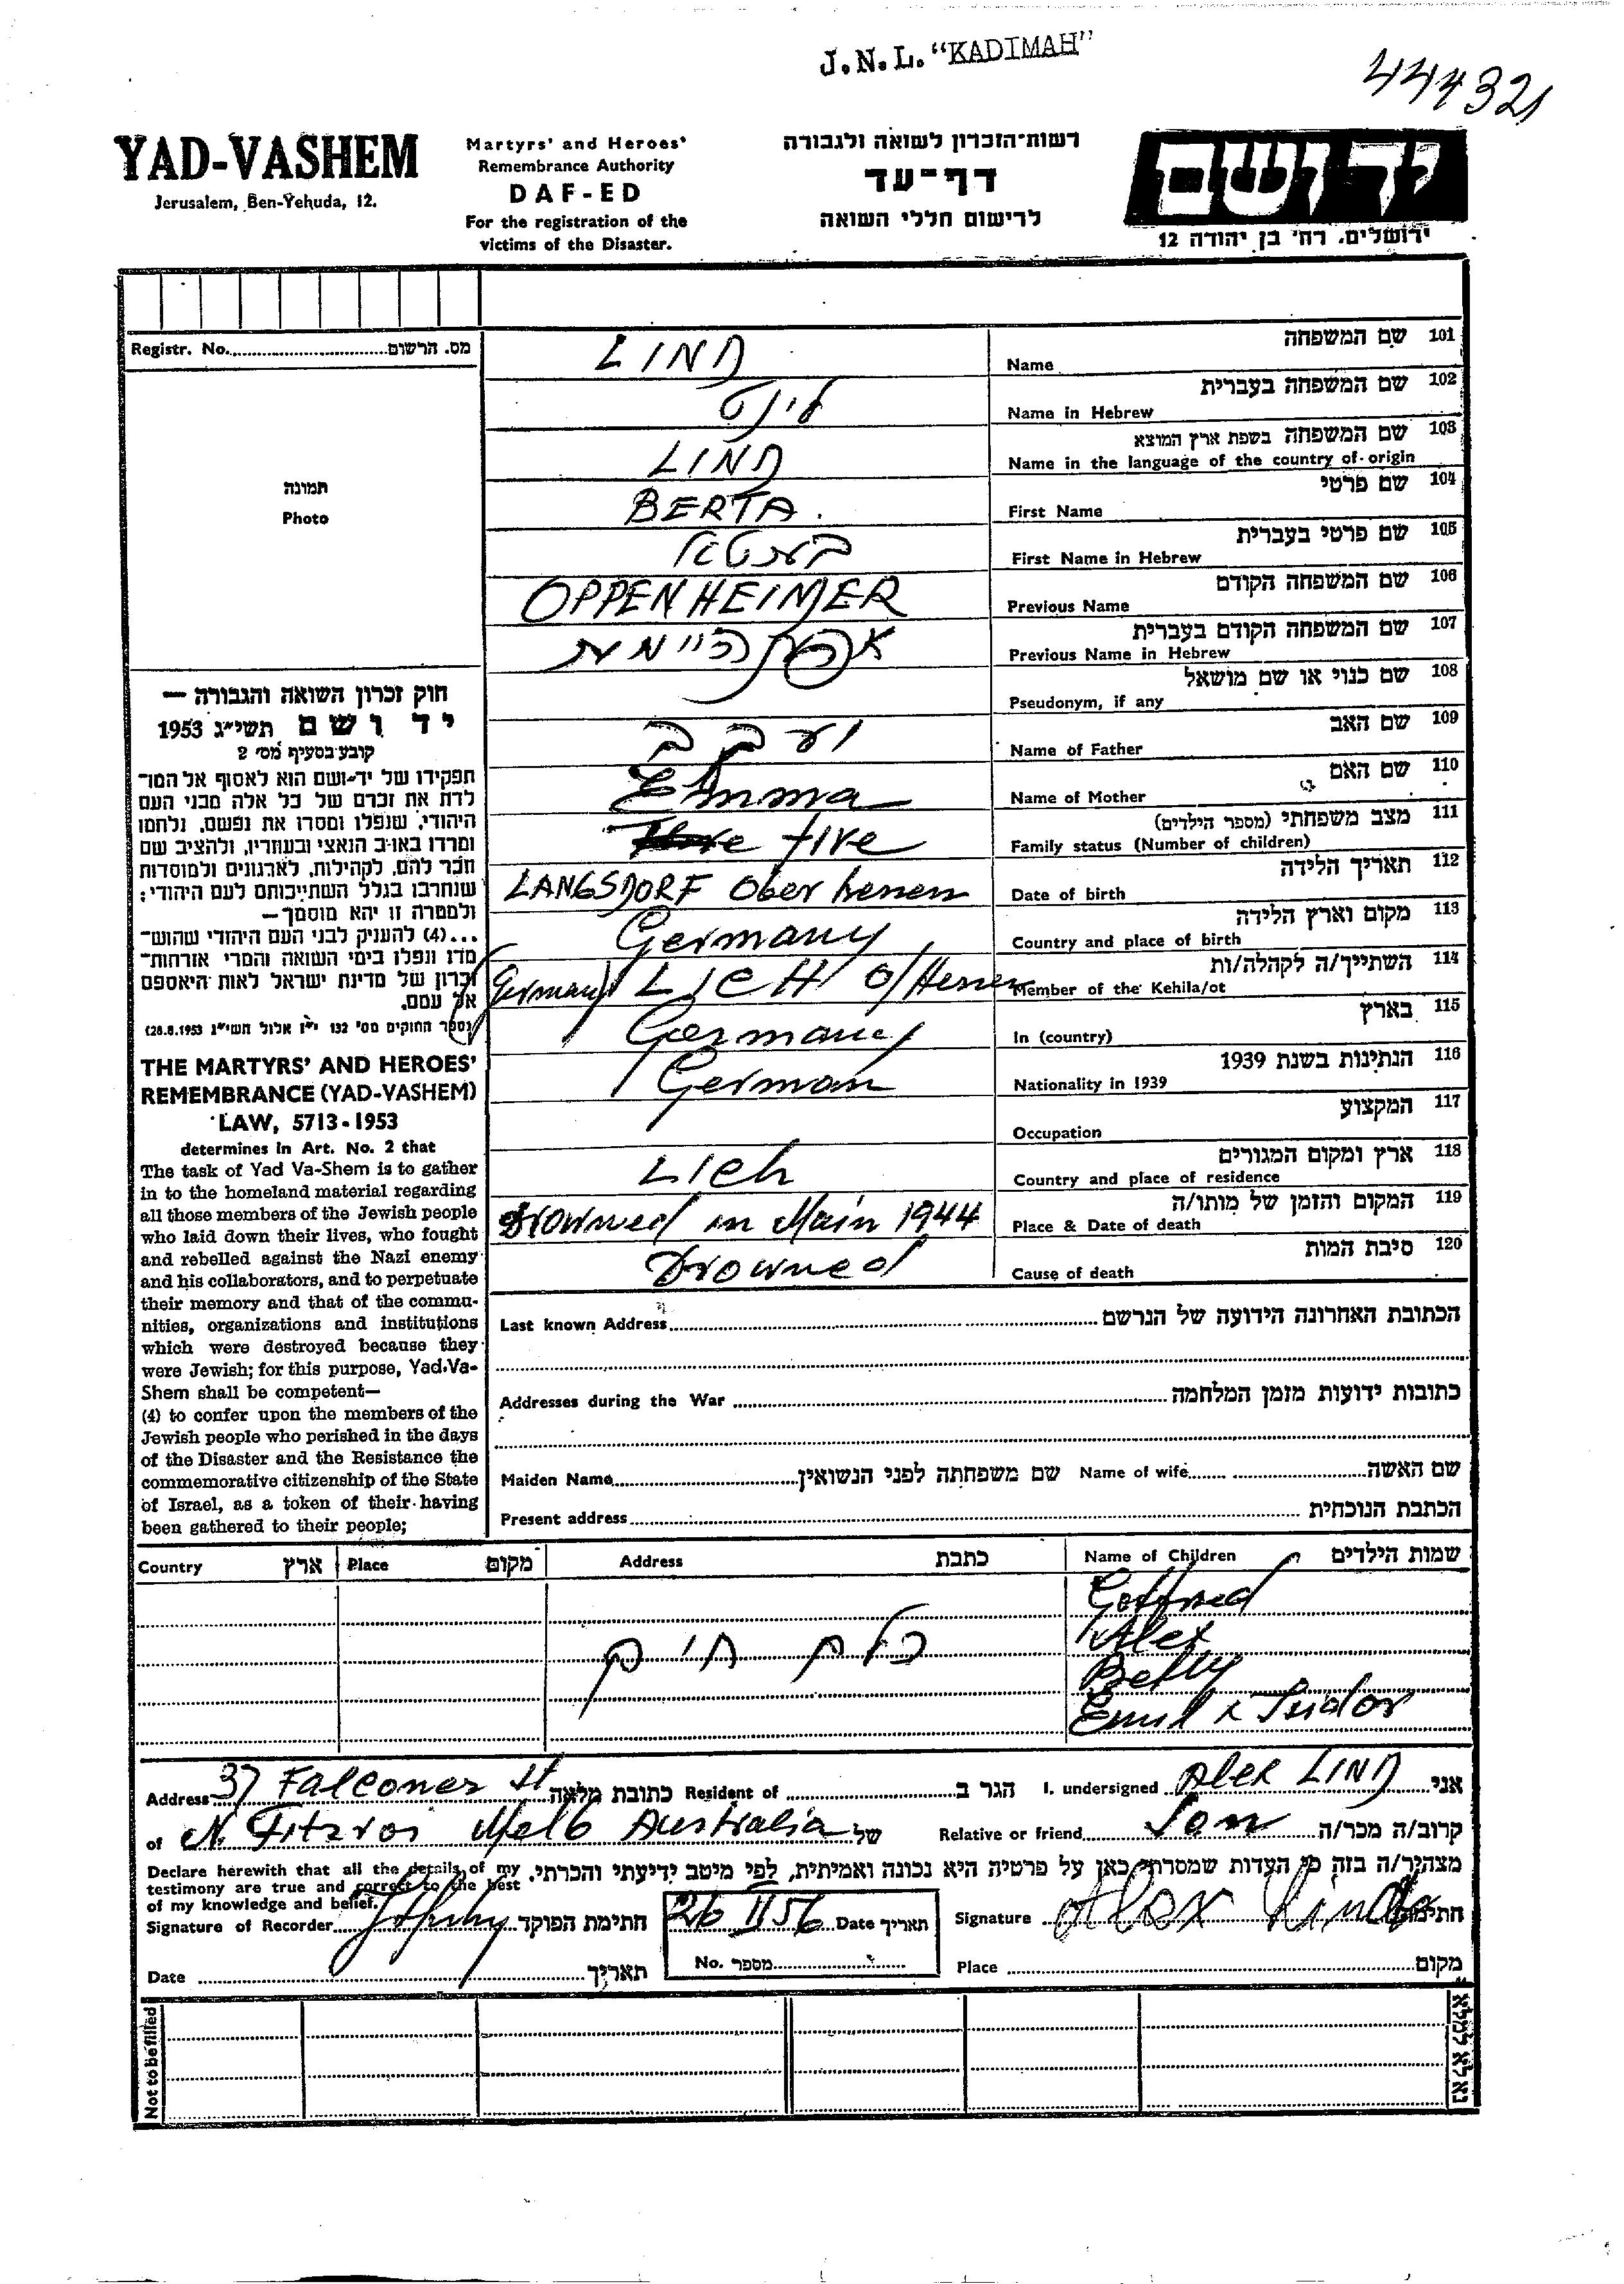 J.N.L. "KADIMAH"
444321
YAD-VASHEM
Jerusalem, Ben-Yehuda, 12.
Martyrs' and Heroes'
Remembrance Authority
DAF-ED
For the registration of the
victims of the Disaster.
רשות־הזכרון לשואה ולגבורה
דף־עד
לרישום חללי השואה
יד ושם
ירושלים, רח' בן יהודה 12
Registr. No. מס. הרשום
תמונה
Photo
חוק זכרון השואה והגבורה —
יד ושם תשי"ג 1953
קובע בסעיף מס' 2
תפקידו של יד־ושם הוא לאסוף אל המו־
לדת את זכרם של כל אלה מבני העם
היהודי, שנפלו ומסרו את נפשם, נלחמו
ומרדו באויב הנאצי ובעוזריו, ולהציב שם
וזכר להם, לקהילות, לארגונים ולמוסדות
שנחרבו בגלל השתייכותם לעם היהודי;
ולמטרה זו יהא מוסמך—
...(4) להעניק לבני העם היהודי שהוש־
מדו ונפלו בימי השואה והמרי אזרחות־
זכרון של מדינת ישראל לאות היאספם
אל עמם.
(ספר החוקים מס' 132 י"ז אלול תשי"ג 28.8.1953)
THE MARTYRS' AND HEROES'
REMEMBRANCE (YAD-VASHEM)
LAW, 5713-1953
determines in Art. No. 2 that
The task of Yad Va-Shem is to gather
in to the homeland material regarding
all those members of the Jewish people
who laid down their lives, who fought
and rebelled against the Nazi enemy
and his collaborators, and to perpetuate
their memory and that of the commu-
nities, organizations and institutions
which were destroyed because they
were Jewish; for this purpose, Yad.Va-
Shem shall be competent—
(4) to confer upon the members of the
Jewish people who perished in the days
of the Disaster and the Resistance the
commemorative citizenship of the State
of Israel, as a token of their having
been gathered to their people;
LIND Name שם המשפחה 101
לינד Name in Hebrew שם המשפחה בעברית 102
LIND Name in the language of the country of origin שם המשפחה בשפת ארץ המוצא 103
BERTA. First Name שם פרטי 104
First Name in Hebrew שם פרטי בעברית 105
OPPENHEIMER Previous Name שם המשפחה הקודם 106
Previous Name in Hebrew שם המשפחה הקודם בעברית 107
Pseudonym, if any שם כנוי או שם מושאל 108
Name of Father שם האב 109
Emma Name of Mother שם האם 110
five Family status (Number of children) מצב משפחתי (מספר הילדים) 111
LANGSDORF Oberhessen Date of birth תאריך הלידה 112
Germany Country and place of birth מקום וארץ הלידה 113
Germany LICH O/Hessen Member of the Kehila/ot השתייך/ה לקהלה/ות 114
Germany In (country) בארץ 115
German Nationality in 1939 הנתינות בשנת 1939 116
Occupation המקצוע 117
Lich Country and place of residence ארץ ומקום המגורים 118
Drowned in Main 1944 Place & Date of death המקום והזמן של מותו/ה 119
Drowned Cause of death סיבת המות 120
Last known Address הכתובת האחרונה הידועה של הנרשם
Addresses during the War כתובות ידועות מזמן המלחמה
Maiden Name שם משפחתה לפני הנשואין Name of wife שם האשה
Present address הכתבת הנוכחית
Country ארץ Place מקום Address כתבת Name of Children שמות הילדים
Gottfried
Alex
Betty
Emil & Isidor
Address 37 Falconer St כתובת מלאה Resident of הגר ב I, undersigned Alex LIND אני
of N. Fitzroi Melb Australia של Relative or friend Son קרוב/ה מכר/ה
מצהיר/ה בזה כי העדות שמסרתי כאן על פרטיה היא נכונה ואמיתית, לפי מיטב ידיעתי והכרתי.
Declare herewith that all the details of my
testimony are true and correct to the best
of my knowledge and belief.
Signature of Recorder חתימת הפוקד 26 II 56 Date תאריך Signature Alex Lind חתימה
Date תאריך No. מספר Place מקום
Not to be filled
נא לא למלא